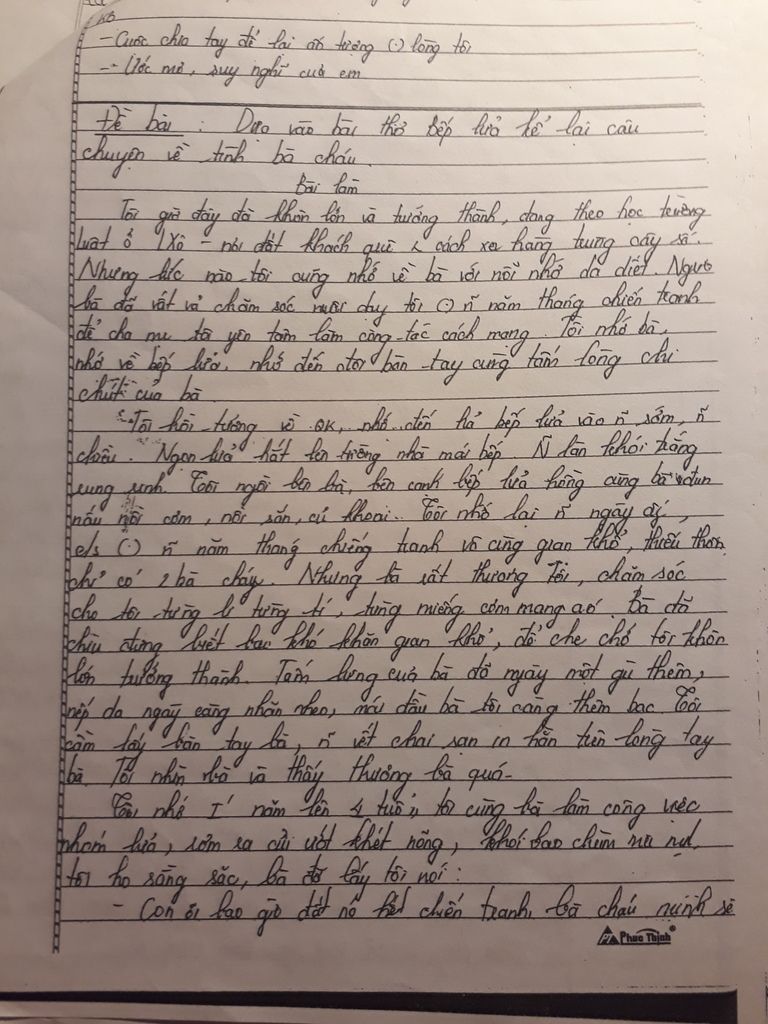 - Cuộc chia tay để lại ấn tượng (.) lòng tôi
- Ước mơ, suy nghĩ của em
Đề bài : Dựa vào bài thơ Bếp lửa kể lại câu
chuyện về tình bà cháu.
Bài làm
Tôi giờ đây đã khôn lớn và tưởng thành, đang theo học trường
luật ở LXô - nơi đất khách quê cách xa hàng trung cây số.
Nhưng lúc nào tôi cũng nhớ về bà với nỗi nhớ da diết. Người
bà đã vất vả chăm sóc nuôi duy tôi (.) ñ năm tháng chiến tranh
để cha mẹ tôi yên tâm làm công tác cách mạng. Tôi nhớ bà,
nhớ về bếp lửa, nhớ đến đôi bàn tay cùng tấm lòng chi
chút của bà.
Tôi hồi tưởng về QK, nhớ đến bếp lửa vào ñ sớm, ñ
chiều. Ngọn lửa hắt lên tường nhà mái bếp. Ñ làn khói trắng
xung quanh. Tôi ngồi bên bà, bên cạnh bếp lửa hồng cùng bà đun
nấu nồi cơm, nồi sắn, củ khoai.. Tôi nhớ lại ñ ngày ấy,
c/s (.) ñ năm tháng chiếng tranh vô cùng gian khổ, thiếu thốn
chỉ có 2 bà cháy. Nhưng bà rất thương Tôi, chăm sóc
cho tôi từng li từng tí, từng miếng cơm mang áo. Bà đã
chịu đựng biết bao khó khăn gian khổ, để che chở tôi khôn
lớn tưởng thành. Tấm lưng của bà đã ngày một gù thêm,
nếp da ngày càng nhăn nheo, mái đầu bà tôi càng thêm bạc. Tôi
cầm lấy bàn tay bà, ñ vết chai sạn in hằn trên lòng tay
bà. Tôi nhìn bà và thấy thương bà quá.
Tôi nhớ năm lên 4 tuổi, tôi cùng bà làm công việc
nhóm lửa, rơm rạ củi ướt khét nồng, khói bao chùm
tôi ho sằng sặc, bà đỡ lấy tôi nói :
- Con ơi bao giờ đất nc hết chiến tranh, bà cháu mình sẽ
Phuc Thinh